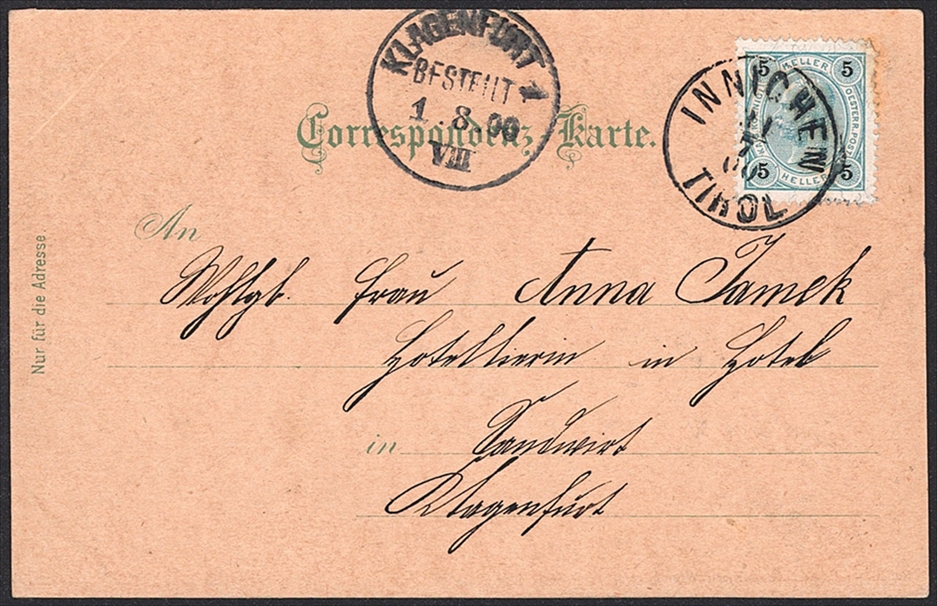 KLAGENFURT 1
BESTELLT
1.8.00
VIII
Correspondenz-Karte.
INNICHEN
TIROL
5 HELLER 5
5 HELLER 5
OESTERR. POST
An
Wohlgb. Frau Anna Jamek
Hotellierin in Hotel
in Sandwirt
Klagenfurt
Nur für die Adresse.